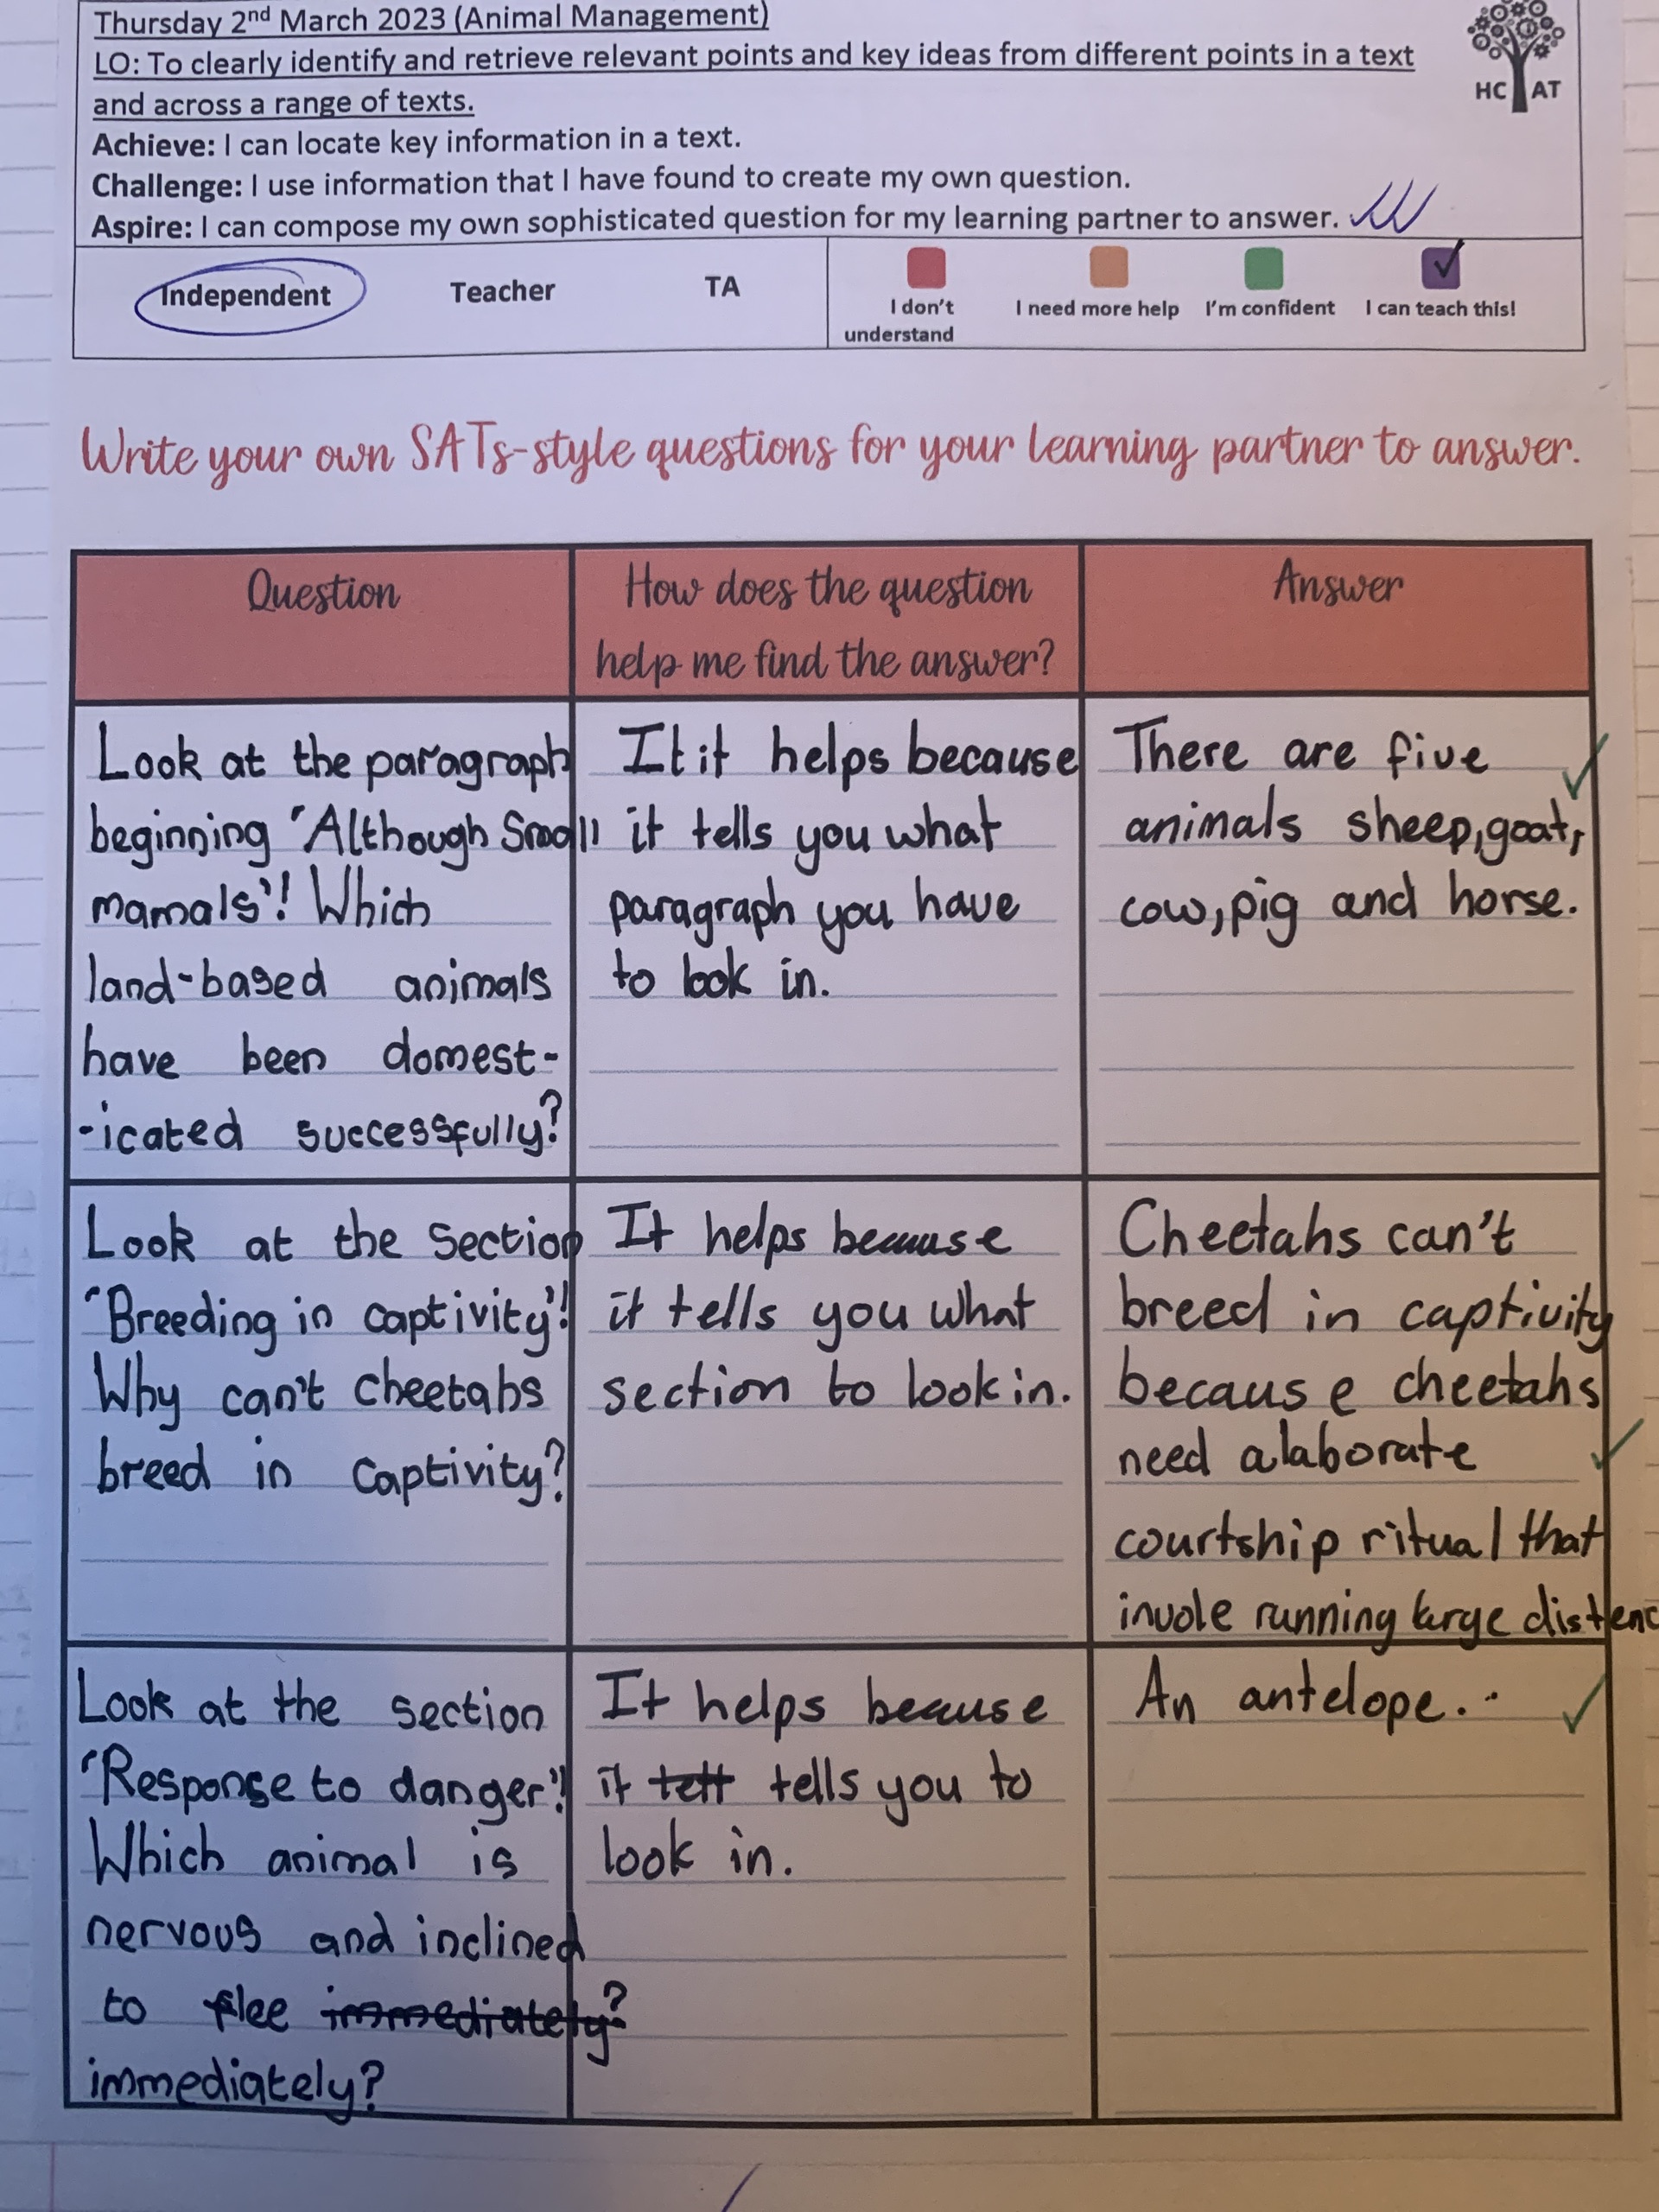 Thursday 2nd March 2023 (Animal Management)
LO: To clearly identify and retrieve relevant points and key ideas from different points in a text
and across a range of texts.
Achieve: I can locate key information in a text.
Challenge: I use information that I have found to create my own question.
Aspire: I can compose my own sophisticated question for my learning partner to answer.
HCAT
Independent Teacher TA
I don't
understand
I need more help
I'm confident
I can teach this!
Write your own SATs-style questions for your learning partner to answer.
Question
How does the question
help me find the answer?
Answer
Look at the paragraph
beginning 'Although Small
mamals'! Which
land-based animals
have been domest-
-icated successfully?
It it helps because
it tells you what
paragraph you have
to look in.
There are five
animals sheep, goat,
cow, pig and horse.
Look at the section
'Breeding in captivity'!
Why can't cheetahs
breed in captivity?
It helps because
it tells you what
section to look in.
Cheetahs can't
breed in captivity
because cheetahs
need alaborate
courtship ritual that
invole running large distenc
Look at the section
'Response to danger'!
Which animal is
nervous and inclined
to flee immediately?
immediately?
It helps because
it tell tells you to
look in.
An antelope.